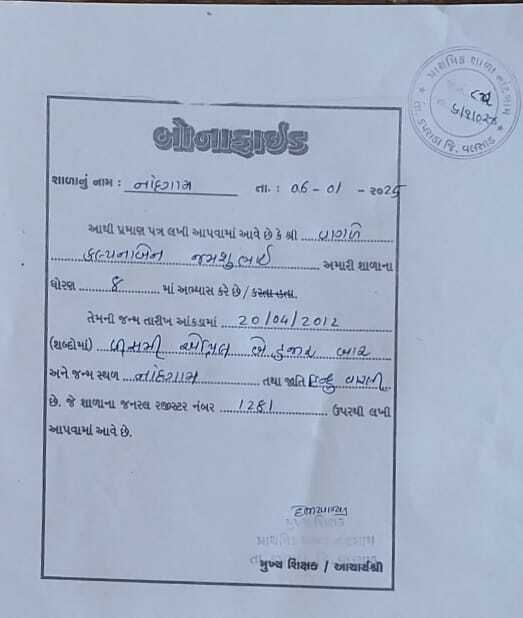 પ્રાથમિક શાળા નાંદગામ
તા. કપરાડા જિ. વલસાડ
બોનાફાઈડ
શાળાનું નામ : નાંદગામ તા. : ૦6 - ૦1 - ૨૦25
આથી પ્રમાણ પત્ર લખી આપવામાં આવે છે કે શ્રી
કલ્પનાબેન જમશુભાઈ અમારી શાળાના
ધોરણ 8 માં અભ્યાસ કરે છે / કરતા હતા.
તેમની જન્મ તારીખ આંકડામાં 20/04/2012
(શબ્દોમાં) વીસમી એપ્રિલ બે હજાર બાર
અને જન્મ સ્થળ નાંદગામ તથા જાતિ હિન્દુ વારલી
છે. જે શાળાના જનરલ રજીસ્ટર નંબર 1281 ઉપરથી લખી
આપવામાં આવે છે.
મુખ્ય શિક્ષક / આચાર્યશ્રી